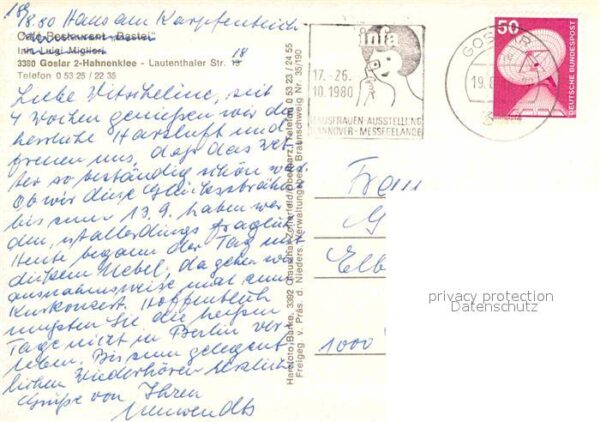 18/8.80 Haus am Karpfenteich
Café-Restaurant "Bastei"
Inh. Luigi Miglieri
18
3380 Goslar 2-Hahnenklee - Lautenthaler Str. 13
Telefon 0 53 25 / 22 35
Liebe seit
4 Wochen genießen wir die
herrliche Harzluft und
freuen uns, daß das Wet-
ter so beständig schön war.
Ob wir diese Glückssträhne
bis zum 13.9. haben wer
den, ist allerdings fraglich
Heute begann der Tag mit
dickem Nebel, da gehen wir
ausnahmsweise mal zum
Kurkonzert. Hoffentlich
mußten Sie die heißen
Tage nicht in Berlin ver
leben. Bis zum gelegent
lichen Wiederhören herzliche
Grüße von Ihren
Harz(foto) Barke, 3392 Clausthal-Zellerfeld/Oberharz, Telefon 0 53 23 / 24 55
Freigeg. v. Präs. d. Nieders. Verwaltungsbez. Braunschweig Nr. 35/190
infa
17.-26.
10.1980
HAUSFRAUEN-AUSSTELLUNG
HANNOVER-MESSEGELÄNDE
GOSLAR
19.
50
DEUTSCHE BUNDESPOST
Frau
G
Elb
1000
privacy protection
Datenschutz